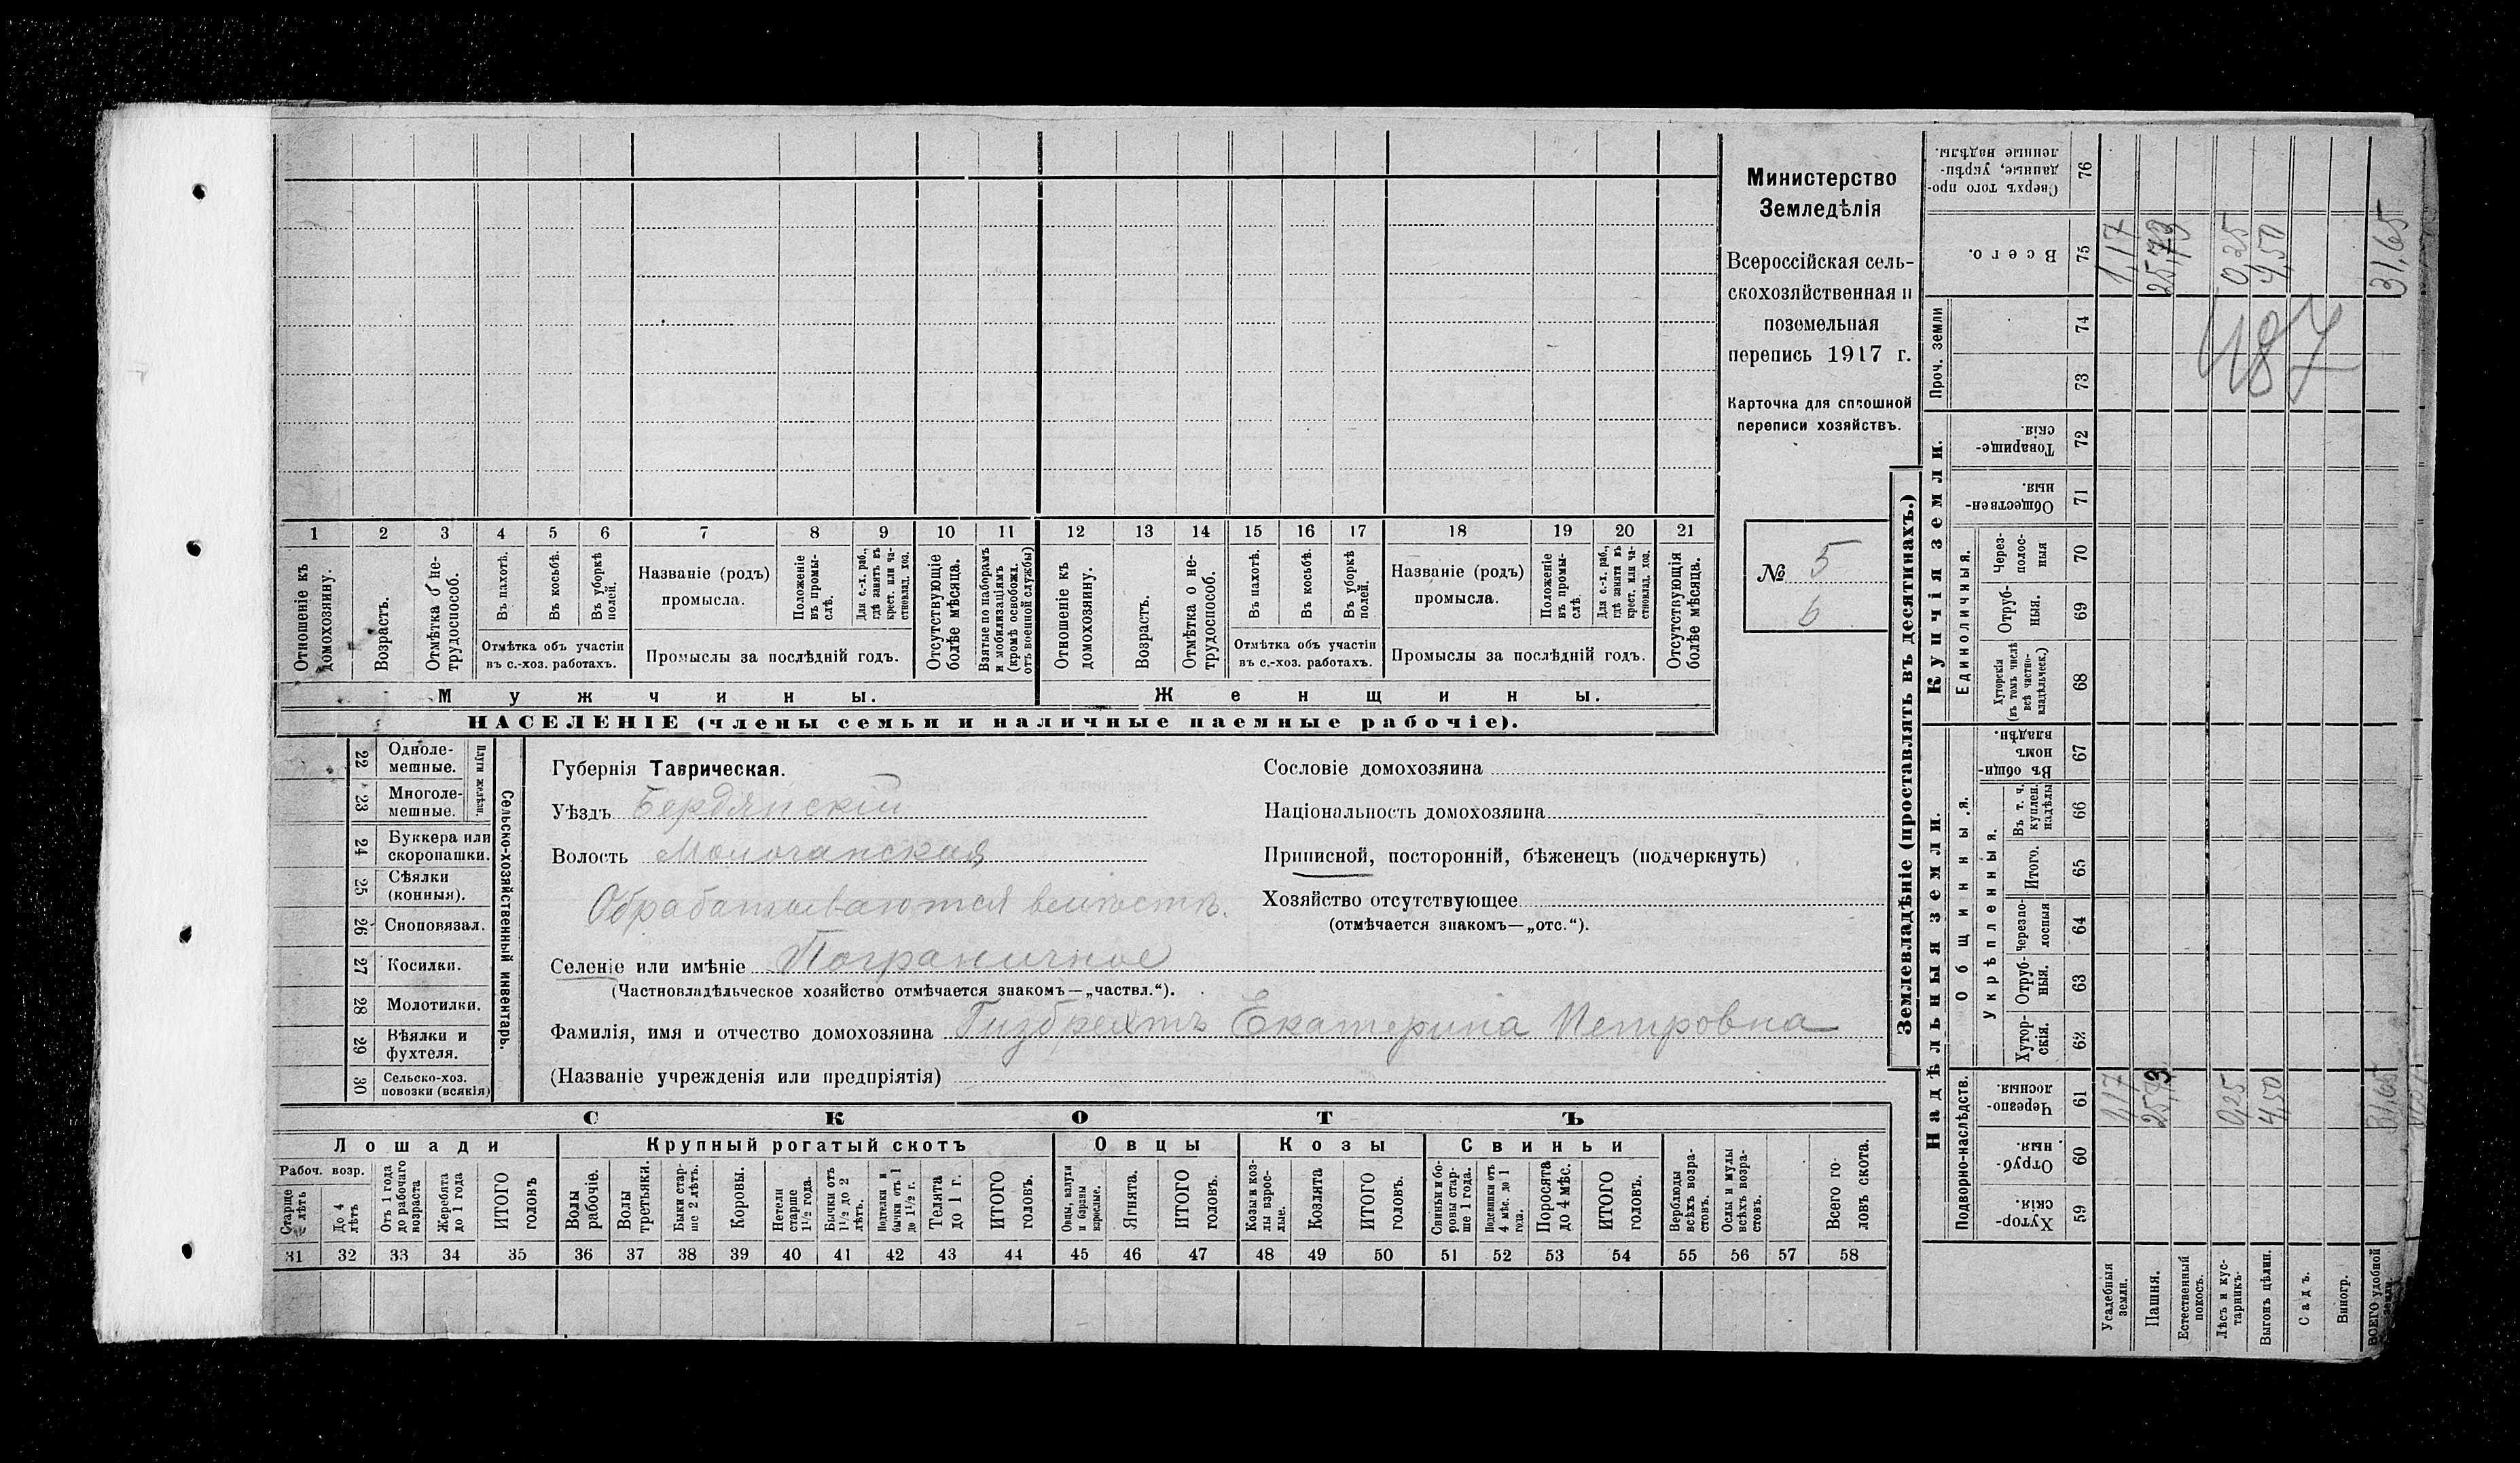 Министерство
Земледѣлія
Всероссійская сель-
скохозяйственная и
поземельная
перепись 1917 г.
Карточка для сплошной
переписи хозяйствъ.
№ 5
6
1 2 3 4 5 6 7 8 9 10 11 12 13 14 15 16 17 18 19 20 21
Отношеніе къ домохозяину.
Возрастъ.
Отмѣтка о не-трудоспособ.
Въ пахотѣ.
Въ косьбѣ.
Въ уборкѣ полей.
Отмѣтка объ участіи
въ с.-хоз. работахъ.
Названіе (родъ)
промысла.
Положеніе въ промы-слѣ.
Для с.-х. раб., гдѣ занятъ въ крест. или ча-стновлад. хоз.
Промыслы за послѣдній годъ.
Отсутствующіе болѣе мѣсяца.
Взятые по наборамъ и мобилизаціямъ (кромѣ освобожд. отъ военной службы)
Отношеніе къ домохозяину.
Возрастъ.
Отмѣтка о не-трудоспособ.
Въ пахотѣ.
Въ косьбѣ.
Въ уборкѣ полей.
Отмѣтка объ участіи
въ с.-хоз. работахъ.
Названіе (родъ)
промысла.
Положеніе въ промы-слѣ.
Для с.-х. раб., гдѣ занята въ крест. или ча-стновлад. хоз.
Промыслы за послѣдній годъ.
Отсутствующія болѣе мѣсяца.
Мужчины.
Женщины.
НАСЕЛЕНІЕ (члены семьи и наличные наемные рабочіе).
22 Одноле-мешные.
23 Многоле-мешные.
Плуги желѣзн.
24 Буккера или скоропашки.
25 Сѣялки (конныя).
26 Сноповязал.
27 Косилки.
28 Молотилки.
29 Вѣялки и фухтеля.
30 Сельско-хоз. повозки (всякія)
Сельско-хозяйственный инвентарь.
Губернія Таврическая.
Уѣздъ Бердянскій
Волость Молочанская
Обрабатываются вмѣстѣ.
Селеніе или имѣніе Пограничное
(Частновладѣльческое хозяйство отмѣчается знакомъ—„частвл.“).
Фамилія, имя и отчество домохозяина Гизбрехтъ Екатерина Петровна
(Названіе учрежденія или предпріятія)
Сословіе домохозяина
Національность домохозяина
Приписной, посторонній, бѣженецъ (подчеркнуть)
Хозяйство отсутствующее
(отмѣчается знакомъ—„отс.“).
СКОТЪ
Лошади
Крупный рогатый скотъ
Овцы
Козы
Свиньи
Рабоч. возр.
Старше 4 лѣтъ
До 4 лѣтъ
Отъ 1 года до рабочаго возраста
Жеребята до 1 года
ИТОГО головъ
Волы рабочіе.
Волы третьяки.
Быки стар-ше 2 лѣтъ.
Коровы.
Нетели старше 1½ года.
Бычки отъ 1½ до 2 лѣтъ.
Подтелки и бычки отъ 1 до 1½ г.
Телята до 1 г.
ИТОГО головъ.
Овцы, валухи и бараны взрослые.
Ягнята.
ИТОГО головъ.
Козы и коз-лы взрос-лые.
Козлята
ИТОГО головъ.
Свиньи и бо-ровы стар-ше 1 года.
Подсвинки отъ 4 мѣс. до 1 года.
Поросята до 4 мѣс.
ИТОГО головъ.
Верблюды всѣхъ возра-стовъ.
Ослы и мулы всѣхъ возра-стовъ.
Всего го-ловъ скота.
31 32 33 34 35 36 37 38 39 40 41 42 43 44 45 46 47 48 49 50 51 52 53 54 55 56 57 58
Землевладѣніе (проставлять въ десятинахъ.)
Надѣльныя земли.
Купчія земли.
Проч. земли
Подворно-наслѣдств.
Общинныя.
Укрѣпленныя.
Единоличныя.
Хутор-скія. 59
Отруб-ныя. 60
Черезпо-лосныя. 61
Хутор-скія. 62
Отруб-ныя. 63
Черезпо-лосныя 64
Итого. 65
Въ т. ч. куплен. надѣлы 66
Въ общи-номъ владѣн. 67
Хуторскія (въ томъ числѣ всѣ частно-владѣльческ.) 68
Отруб-ныя. 69
Через-полос-ныя 70
Обществен-ныя. 71
Товарище-скія. 72
73
74
Всего. 75
Сверхъ того про-данные, укрѣп-ленные надѣлы. 76
Усадебныя земли. 1,17 1,17
Пашня. 25,73 25,73
Естественный покосъ.
Лѣсъ и кус-тарникъ. 0,25 0,25
Выгонъ цѣлин. 4,50 4,50
Садъ.
Виногр.
ВСЕГО удобной земли. 31,65 31,65
487